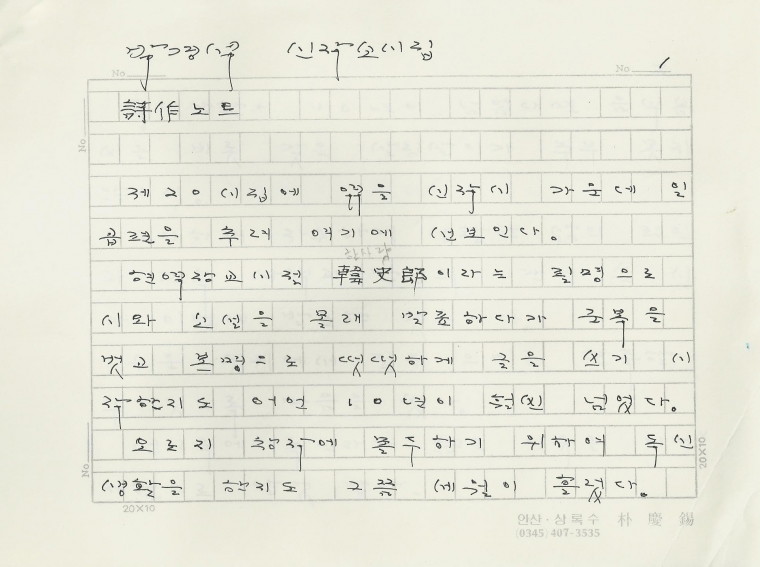 박경석 신작소시집
No. No. 1
詩作 노트
제20시집에 엮을 신작시 가운데 일
곱편을 추려 여기에 선보인다.
한사랑
현역장교시절 韓史郎이라는 필명으로
시와 소설을 몰래 발표하다가 군복을
벗고 본명으로 떳떳하게 글을 쓰기 시
작한지도 어언 10년이 훨씬 넘었다.
오로지 창작에 몰두하기 위하여 독신
생활을 한지도 그쯤 세월이 흘렀다.
No
No
20X10
20X10
안산·상록수 朴慶錫
(0345) 407-3535